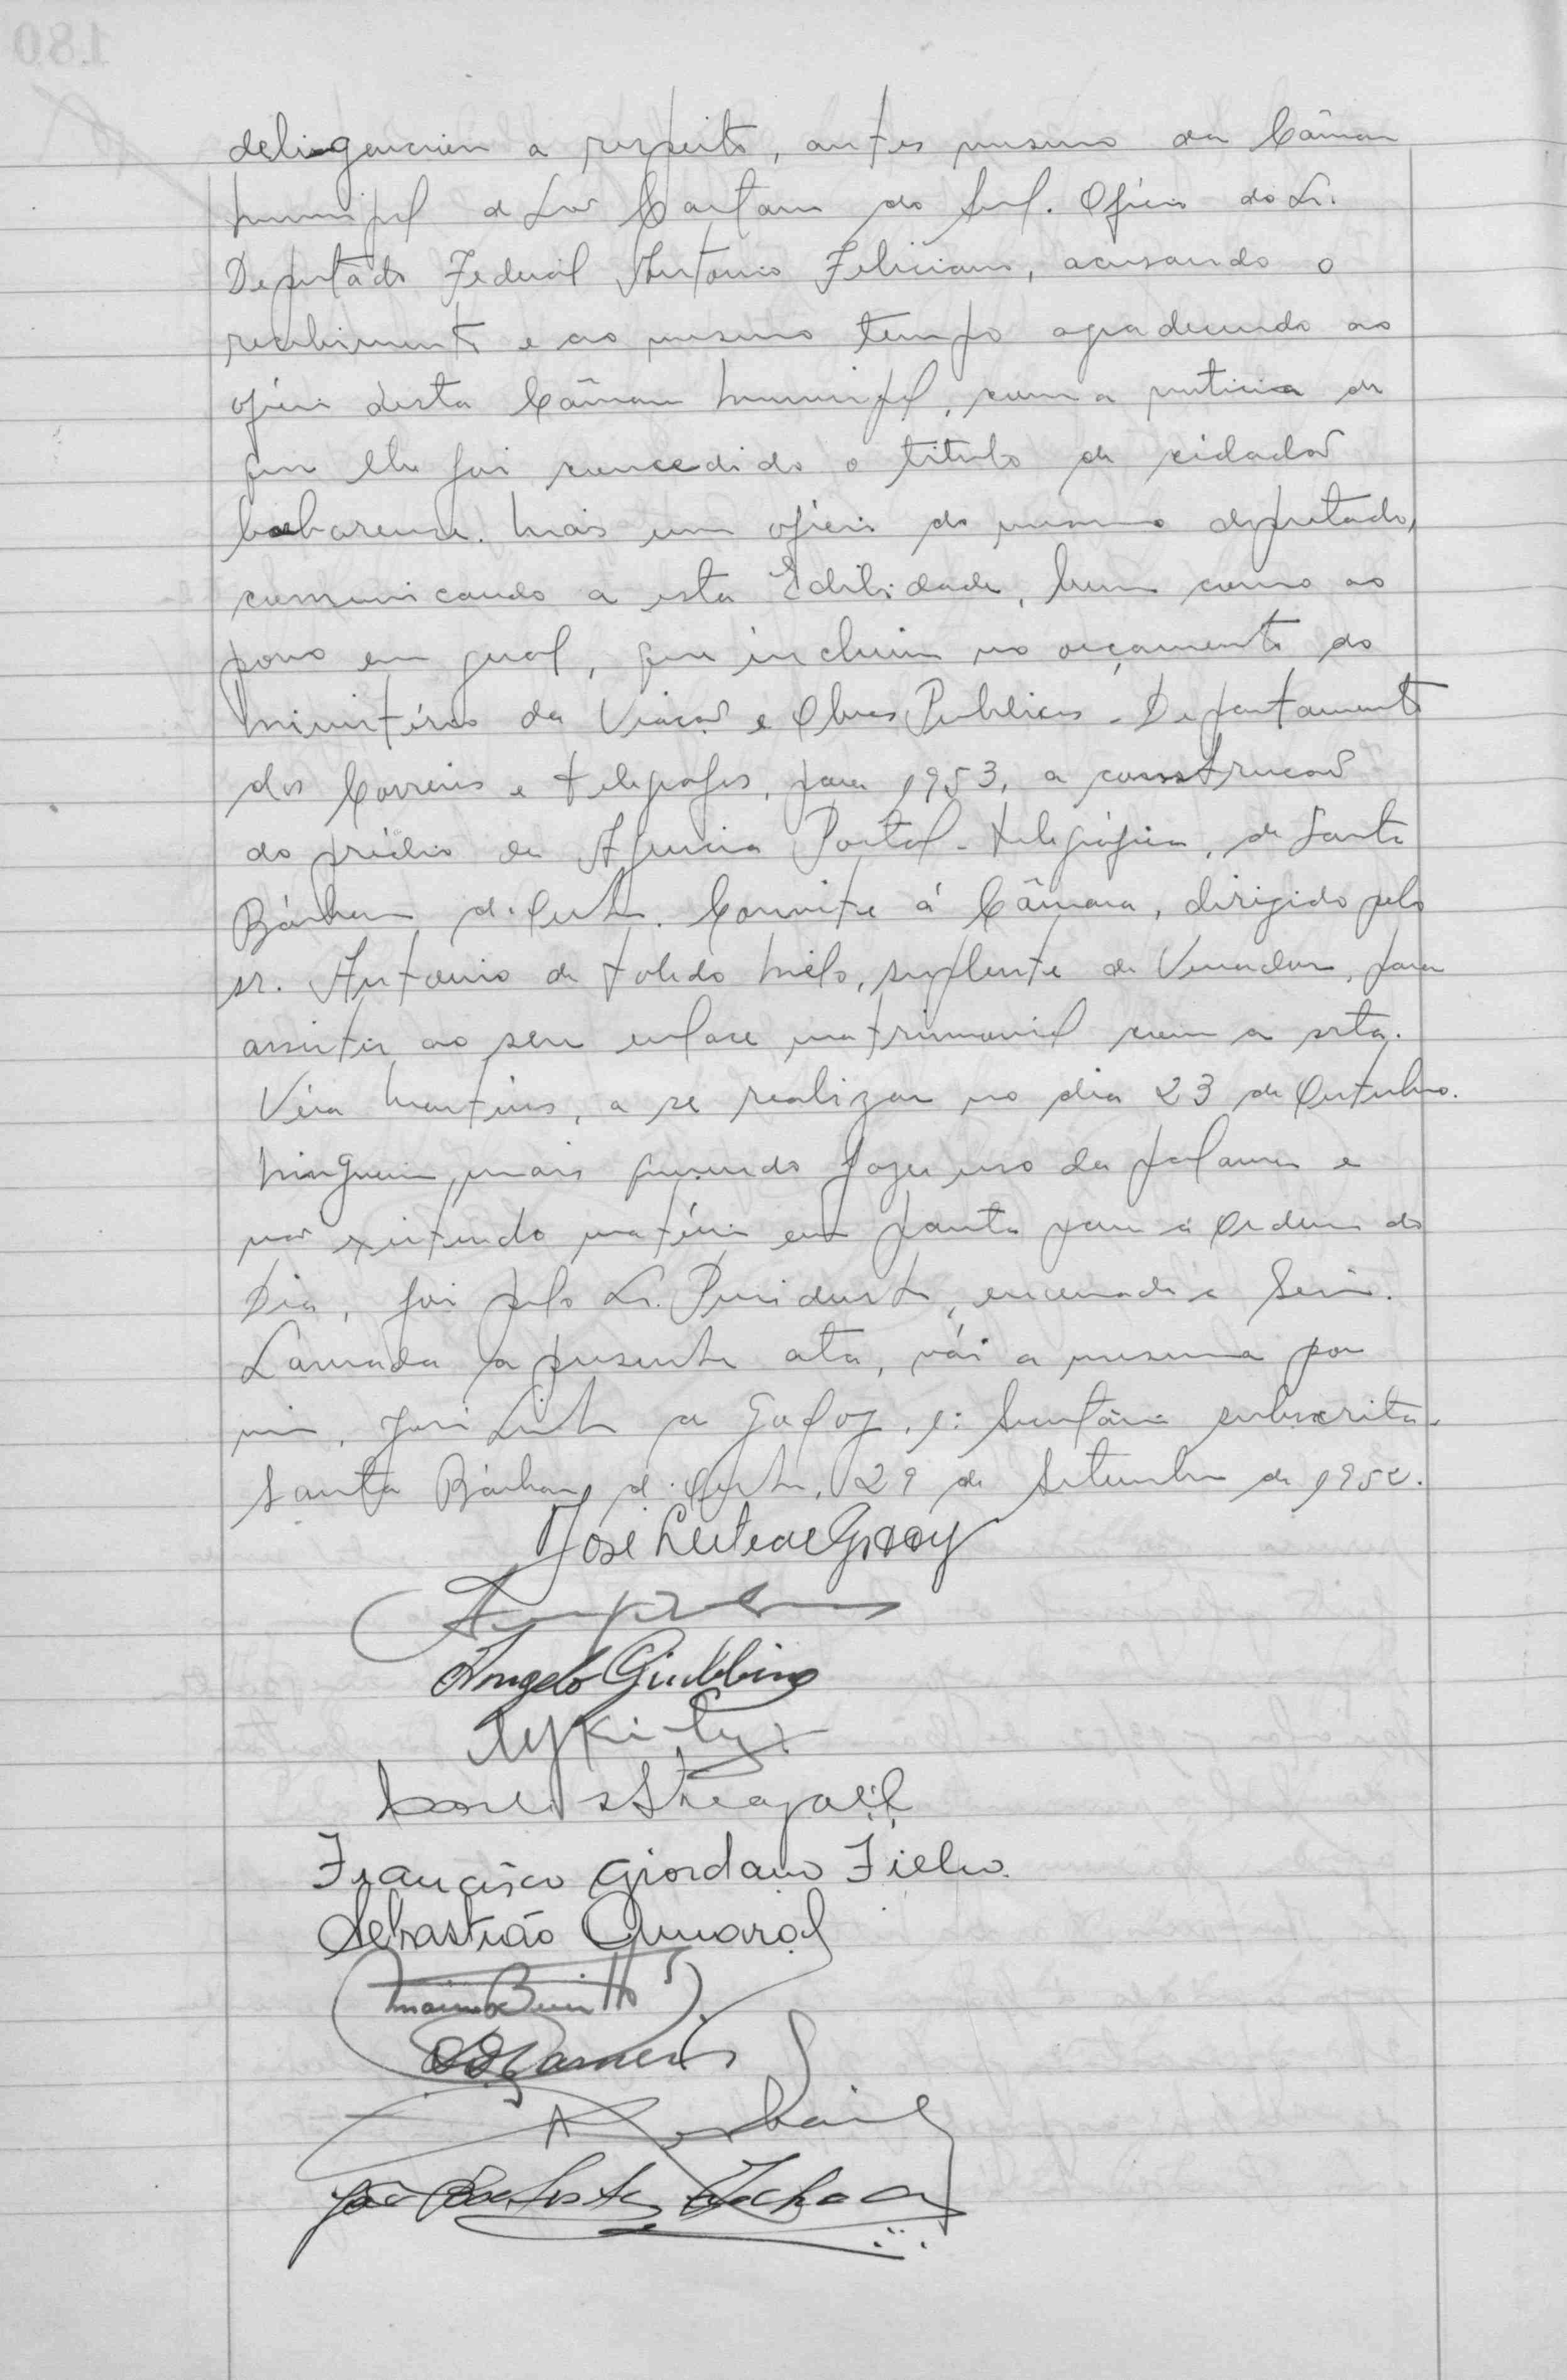 a respeito, antes mesmo da Câmara
Municipal de São Caetano do Sul. Oficio do Sr.
Deputado Federal Antonio Feliciano, acusando o
recebimento e ao mesmo tempo agradecendo ao
oficio desta Câmara Municipal, com a noticia de
que lhe foi concedido o titulo de cidadão
barbarense. Mais um oficio do mesmo deputado,
comunicando a esta Edilidade, bem como ao
povo em geral, que incluiu no orçamento do
Ministério da Viação e Obras Publicas - Departamento
dos Correios e Telegrafos, para 1953, a construcão
do prédio da Agencia Postal-Telegráfica, de Santa
Bárbara d'Oeste. Convite á Câmara, dirigido pelo
sr. Antonio de Toledo Mélo, suplente de Vereador, para
assistir ao seu enlace matrimonial com a srta.
Véra Martins, a se realizar no dia 23 de Outubro.
Ninguem mais querendo fazer uso da palavra e
não existindo matéria em pauta para a Ordem do
Dia, foi pelo Sr. Presidente, encerrada a Sessão.
Lavrada a presente ata, vái a mesma por
mim, José Leite de Godoy, 1º Secretário subscrita.
Santa Bárbara d'Oeste, 29 de Setembro de 1952.
José Leite de Godoy
Angelo Giubbina
Francisco Giordano Filho
Sebastião Amaral
João Baptista
180